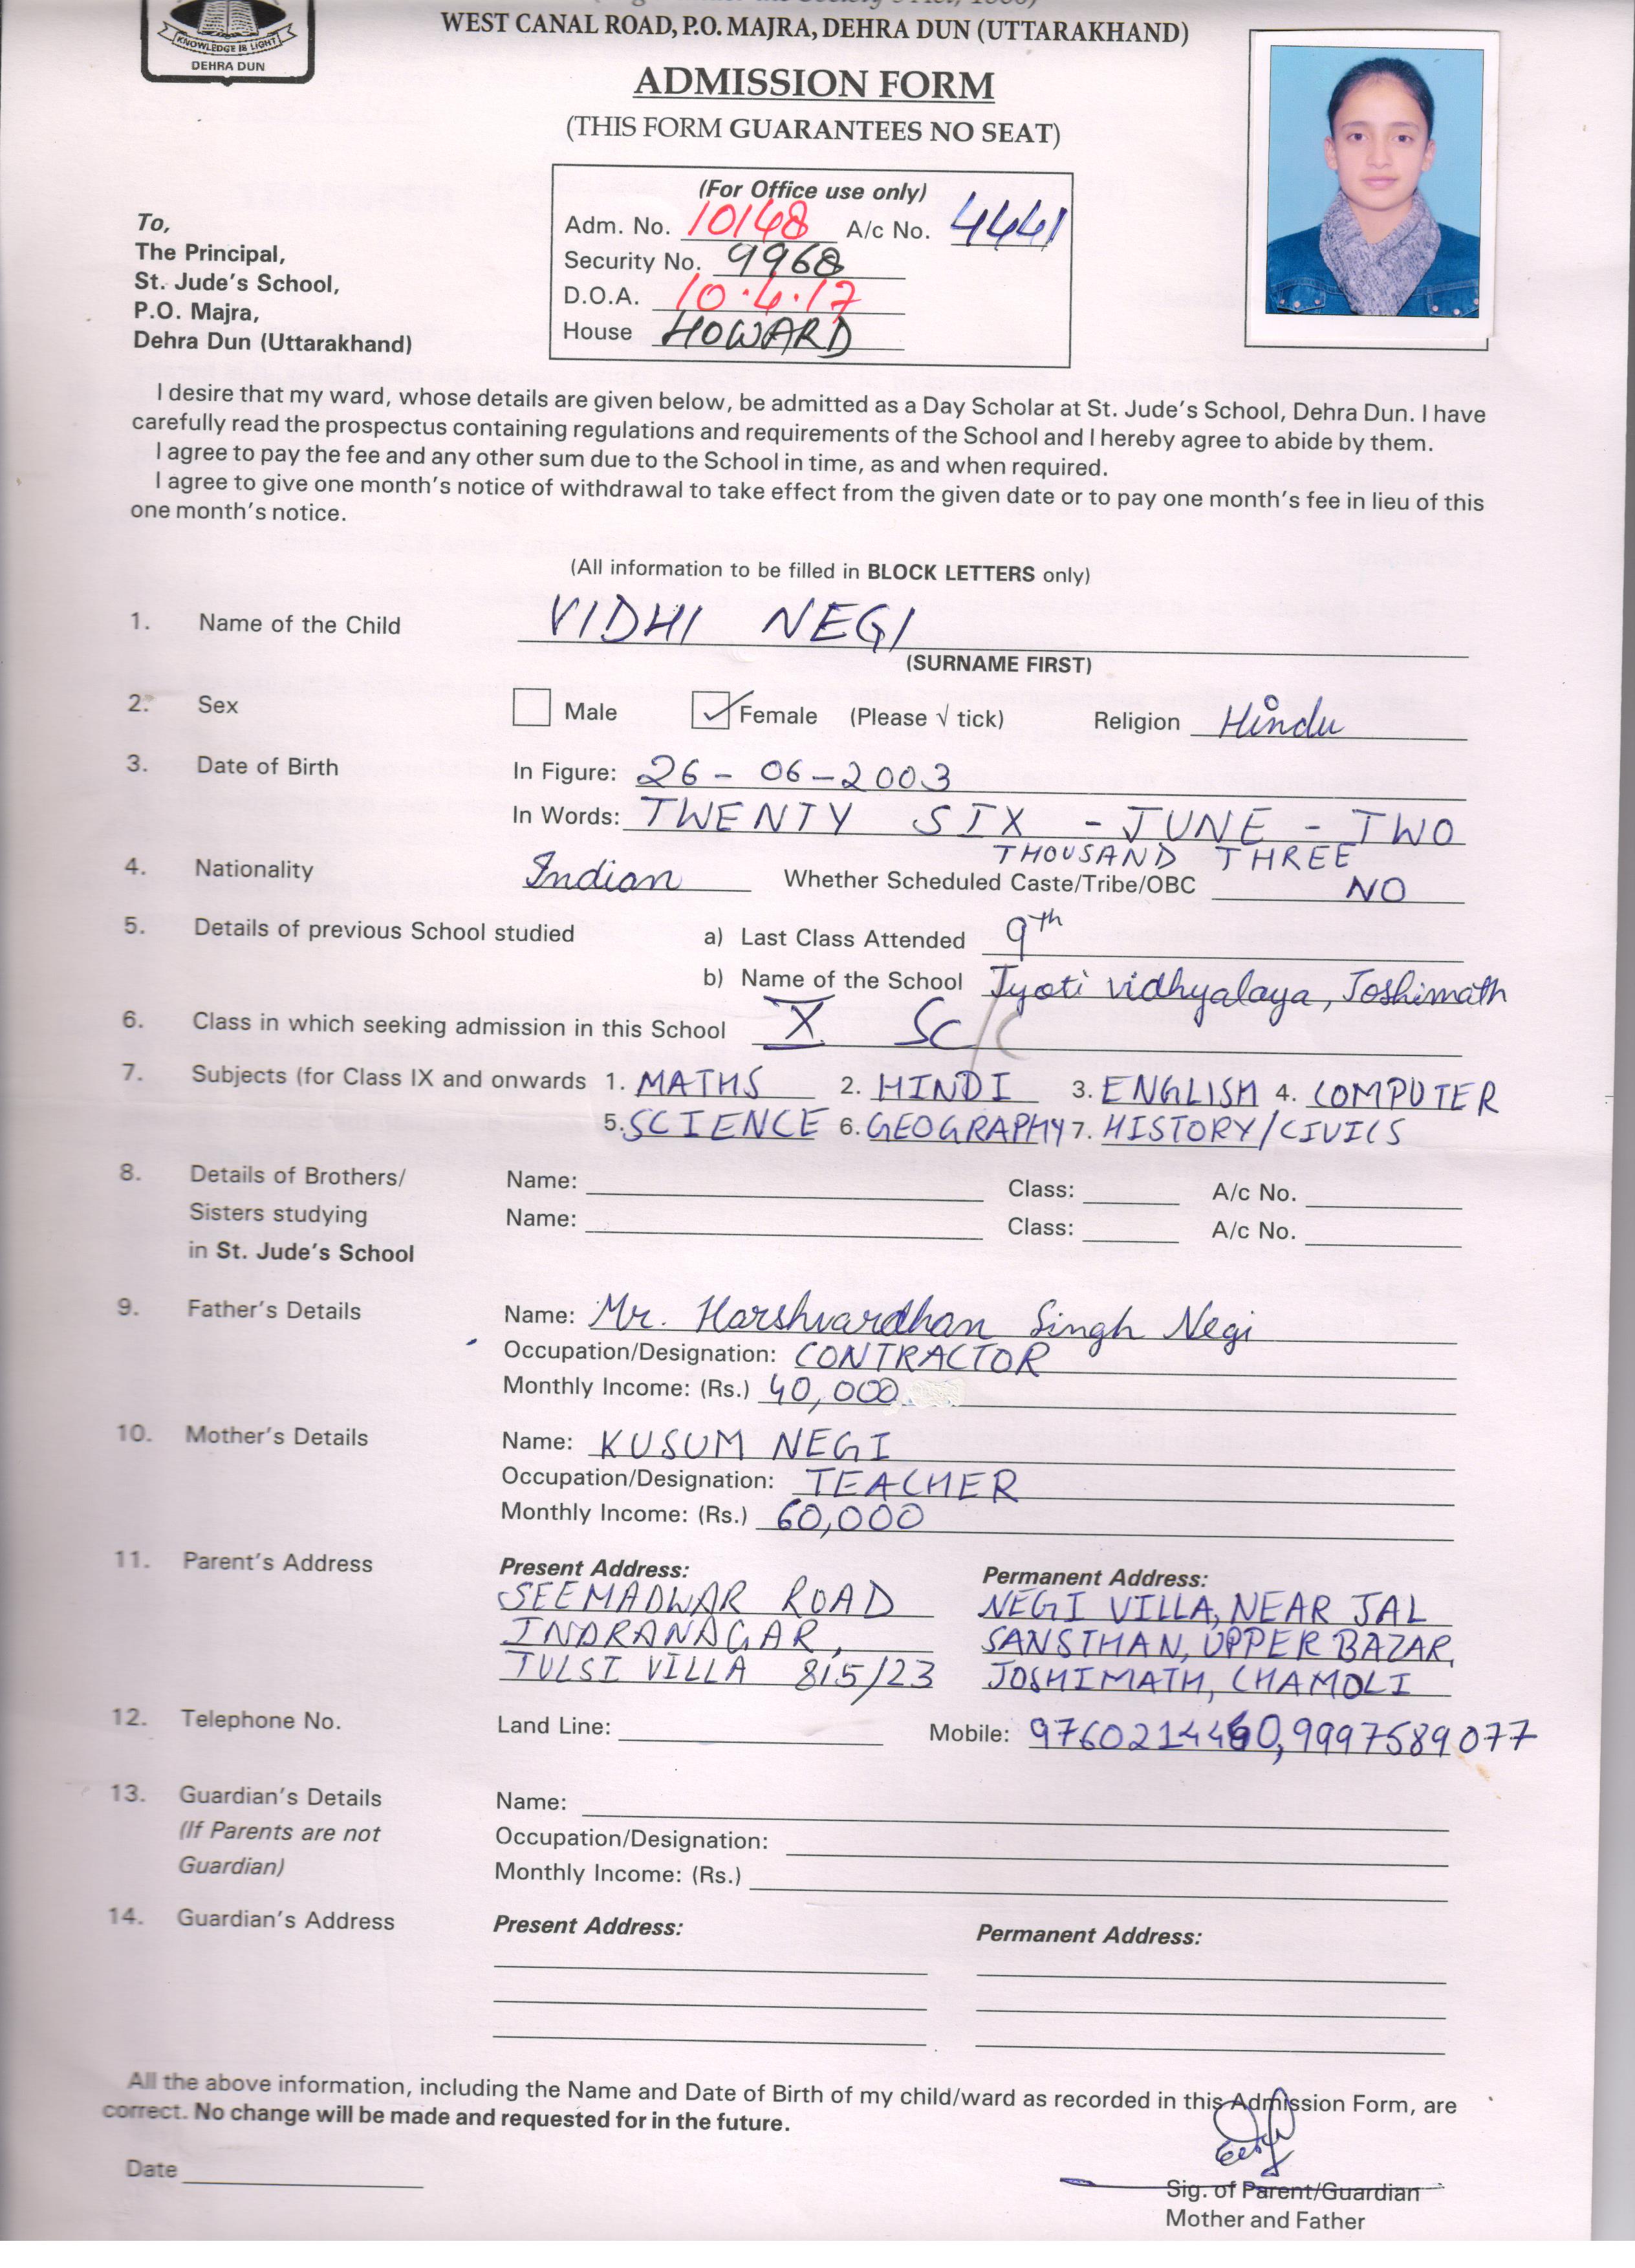 KNOWLEDGE IS LIGHT
DEHRA DUN
WEST CANAL ROAD, P.O. MAJRA, DEHRA DUN (UTTARAKHAND)
ADMISSION FORM
(THIS FORM GUARANTEES NO SEAT)
(For Office use only)
Adm. No. 10148 A/c No. 4441
Security No. 9968
D.O.A. 10.4.17
House HOWARD
To,
The Principal,
St. Jude's School,
P.O. Majra,
Dehra Dun (Uttarakhand)
I desire that my ward, whose details are given below, be admitted as a Day Scholar at St. Jude's School, Dehra Dun. I have
carefully read the prospectus containing regulations and requirements of the School and I hereby agree to abide by them.
I agree to pay the fee and any other sum due to the School in time, as and when required.
I agree to give one month's notice of withdrawal to take effect from the given date or to pay one month's fee in lieu of this
one month's notice.
(All information to be filled in BLOCK LETTERS only)
1. Name of the Child VIDHI NEGI
(SURNAME FIRST)
2. Sex Male Female (Please √ tick) Religion Hindu
3. Date of Birth In Figure: 26 - 06 - 2003
In Words: TWENTY SIX - JUNE - TWO
THOUSAND THREE
4. Nationality Indian Whether Scheduled Caste/Tribe/OBC NO
5. Details of previous School studied a) Last Class Attended 9th
b) Name of the School Jyoti vidhyalaya, Joshimath
6. Class in which seeking admission in this School X Sc/C
7. Subjects (for Class IX and onwards 1. MATHS 2. HINDI 3. ENGLISH 4. COMPUTER
5. SCIENCE 6. GEOGRAPHY 7. HISTORY/CIVICS
8. Details of Brothers/ Name: Class: A/c No.
Sisters studying Name: Class: A/c No.
in St. Jude's School
9. Father's Details Name: Mr. Harshvardhan Singh Negi
Occupation/Designation: CONTRACTOR
Monthly Income: (Rs.) 40,000
10. Mother's Details Name: KUSUM NEGI
Occupation/Designation: TEACHER
Monthly Income: (Rs.) 60,000
11. Parent's Address Present Address: Permanent Address:
SEEMADWAR ROAD NEGI VILLA, NEAR JAL
INDRANAGAR, SANSTHAN, UPPER BAZAR,
TULSI VILLA 815/23 JOSHIMATH, CHAMOLI
12. Telephone No. Land Line: Mobile: 9997589077
13. Guardian's Details Name:
(If Parents are not Occupation/Designation:
Guardian) Monthly Income: (Rs.)
14. Guardian's Address Present Address: Permanent Address:
All the above information, including the Name and Date of Birth of my child/ward as recorded in this Admission Form, are
correct. No change will be made and requested for in the future.
Date
Sig. of Parent/Guardian
Mother and Father